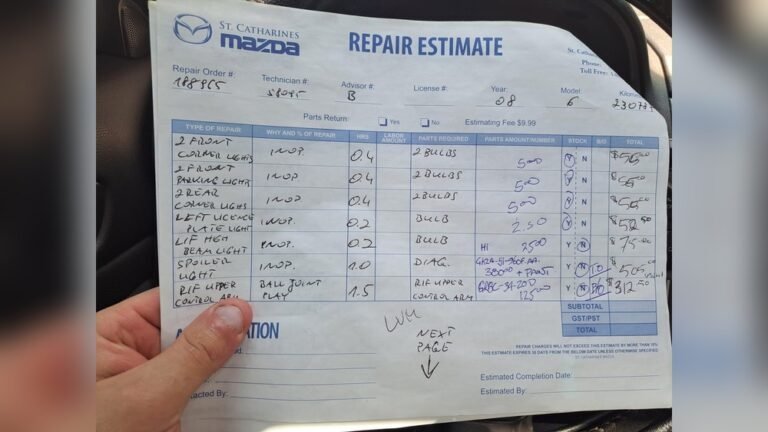 ST. CATHARINES
mazda
REPAIR ESTIMATE
St. Cathari
Phone:
Toll Free:
Repair Order #: Technician #: Advisor #: License #: Year: Model: Kilome
B 08 6
Parts Return: Yes No Estimating Fee $9.99
TYPE OF REPAIR WHY AND % OF REPAIR HRS LABOR AMOUNT PARTS REQUIRED PARTS AMOUNT/NUMBER STOCK B/O TOTAL
2 FRONT
CORNER LIGHTS INOP. 0.4 2 BULBS 5.00 Y N
2 FRONT
PARKING LIGHTS INOP 0.4 2 BULBS 5.00 Y N
2 REAR
CORNER LIGHS INOP 0.4 2 BULBS 5.00 Y N
LEFT LICENCE
PLATE LIGHT INOP. 0.2 BULB 2.50 Y N
L/F HGH
BEAM LIGHT INOP. 0.2 BULB H1 25.00 Y N $75.00
SPOILER
LIGHT INOP. 1.0 DIAG. 380.00 + PAINT Y N
R/F UPPER
CONTROL ARM BALL JOINT
PLAY 1.5 R/F UPPER
CONTROL ARM 125.00 Y N $312.50
SUBTOTAL
GST/PST
TOTAL
NEXT
PAGE
REPAIR CHARGES WILL NOT EXCEED THIS ESTIMATE BY MORE THAN 10%
THIS ESTIMATE EXPIRES 30 DAYS FROM THE BELOW DATE UNLESS OTHERWISE SPECIFIED
ST. CATHARINES MAZDA
Estimated Completion Date:
Estimated By:
tacted By: